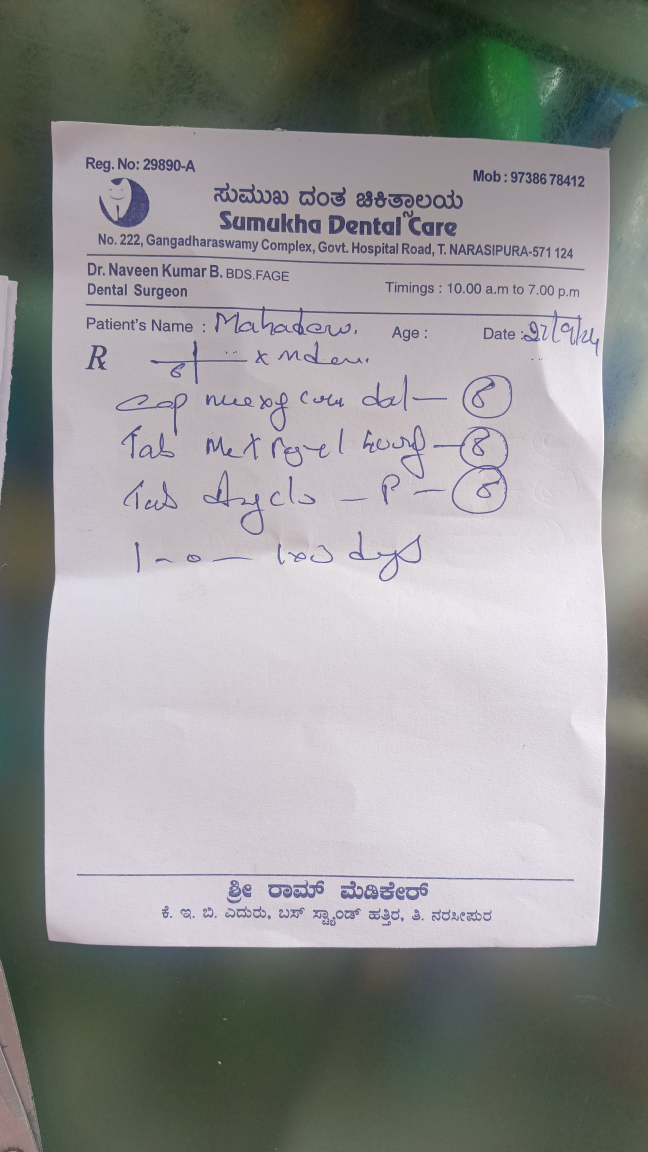 Reg. No: 29890-A
Mob : 97386 78412
ಸುಮುಖ ದಂತ ಚಿಕಿತ್ಸಾಲಯ
Sumukha Dental Care
No. 222, Gangadharaswamy Complex, Govt. Hospital Road, T. NARASIPURA-571 124
Dr. Naveen Kumar B. BDS.FAGE
Dental Surgeon
Timings : 10.00 a.m to 7.00 p.m
Patient's Name :
Age :
Date :
R 8 x
Cap - 8
Tab - 8
Tab - P - 8
1 - 0 - 1x3 days
ಶ್ರೀ ರಾಮ್ ಮೆಡಿಕೇರ್
ಕೆ. ಇ. ಬಿ. ಎದುರು, ಬಸ್ ಸ್ಟ್ಯಾಂಡ್ ಹತ್ತಿರ, ತಿ. ನರಸೀಪುರ